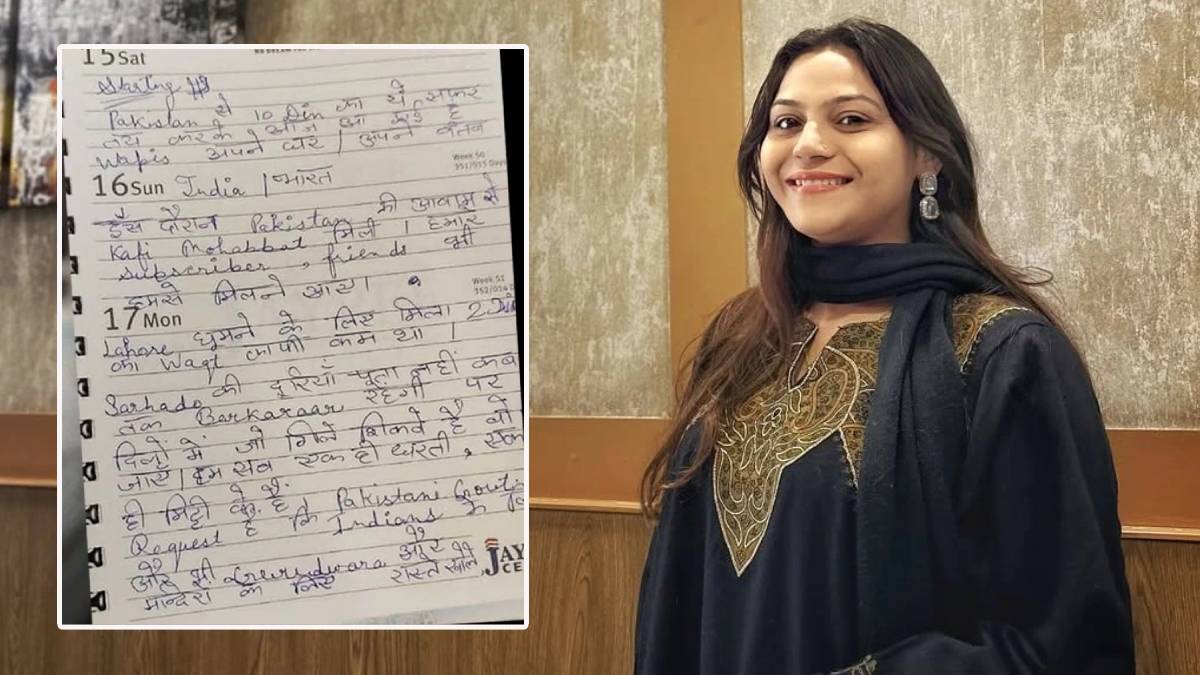 15 Sat
Starting
Pakistan से 10 Din का ये सफर
तय करके आज आ गई है
Wapis अपने घर | अपने वतन
Week 50
16 Sun India | भारत
इस दौरान Pakistan की आवाम से
Kafi Mohabbat मिली | हमारे
subscriber, friends भी
हमसे मिलने आए |
Week 51
17 Mon
Lahore घूमने के लिए मिला 2
का Waqt काफी कम था |
Sarhado की दूरियाँ पता नहीं कब
तक Barkaraar रहेंगी पर
दिलों में जो गिले शिकवे है वो
जाएं | हम सब एक ही धरती, एक
ही मिट्टी के है
Request है कि Pakistani Govt
Indians के
और भी Gurudwara और
मन्दिरों के लिए रास्ते खोले
JAY
CE